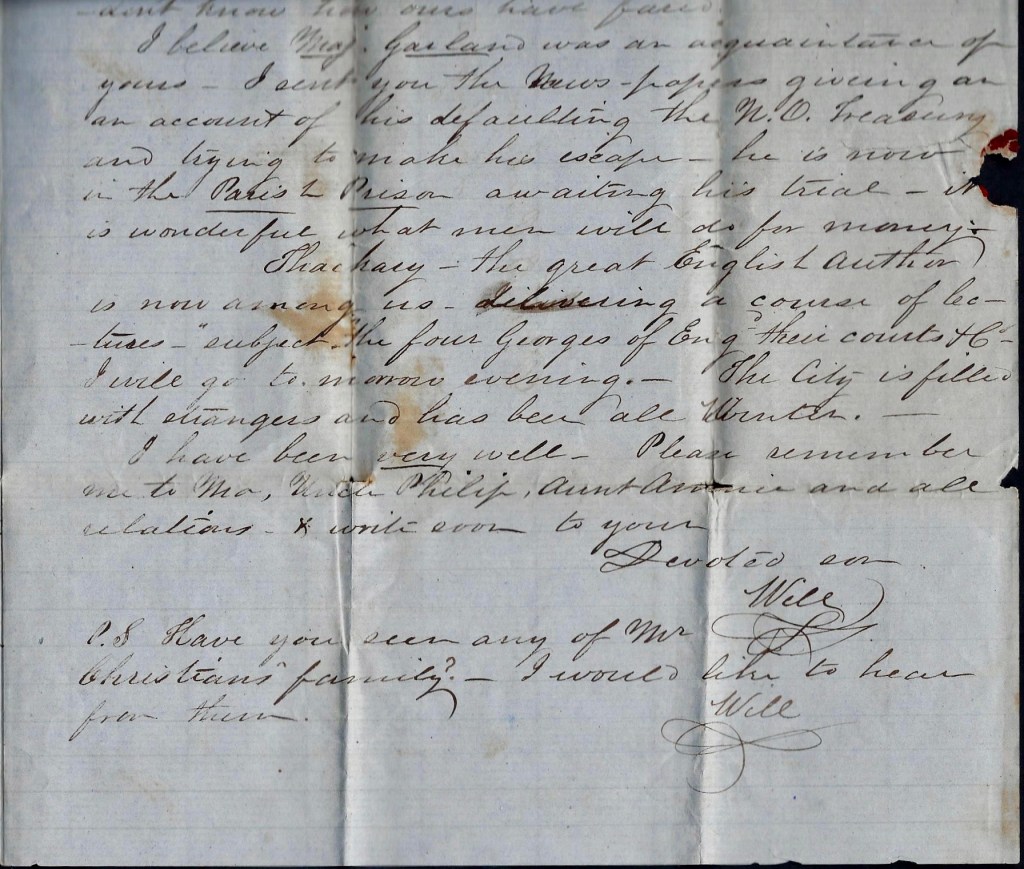 don't know how ours have fared.
I believe Maj. Garland was an acquaintance of
yours - I sent you the News-papers giving an
an account of his defaulting the N.O. Treasury
and trying to make his escape - he is now
in the Parish Prison awaiting his trial - it
is wonderful what men will do for money.-
Thackary - the great English author
is now among us - delivering a course of lec-
-tures - "subject "the four Georges of Eng" their courts &c -
I will go to morrow evening. - The City is filled
with strangers and has been all Winter. -
I have been very well - Please remember
me to Ma, Uncle Philip, Aunt and all
relations - & write soon to your
Devoted son
Will
P.S Have you seen any of Mr
Christians family? - I would like to hear
from them.
Will